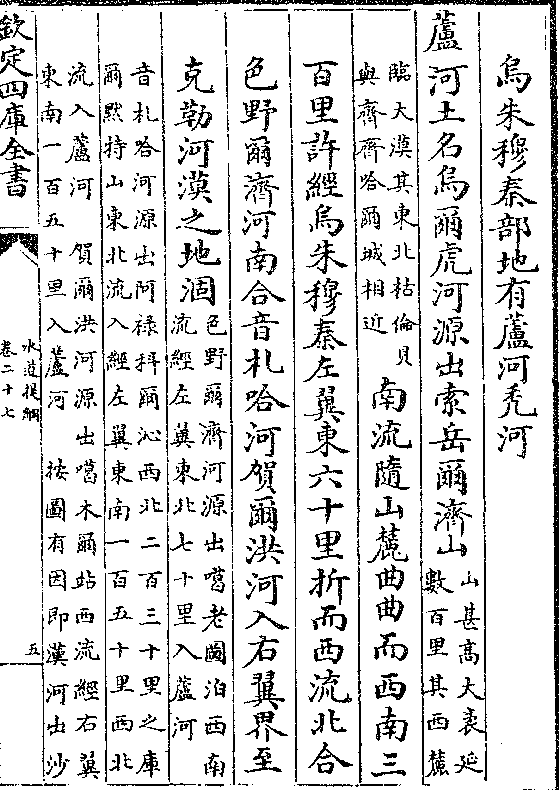 烏朱穆秦部地有蘆河禿河
蘆河土名烏爾虎河源出索岳爾濟山
山甚高大袤延
數百里其西麓
臨大漠其東北枯倫貝
與齊齊哈爾城相近
南流隨山麓曲曲而西南三
百里許經烏朱穆秦左翼東六十里折而西流北合
色野爾濟河南合音札哈河賀爾洪河入右翼界至
克勒河漠之地涸
色野爾濟河源出噶老圖泊西南
流經左翼東北七十里入蘆河
音札哈河源出阿祿抖爾沁西北二百三十里之庫
爾默特山東北流入經左翼東南一百五十里西北
流入蘆河　賀爾洪河源出噶木爾站西流經右翼
東南一百五十里入蘆河　按圖有因即漢河出沙
欽定四庫全書
水道提綱
卷二十七
五